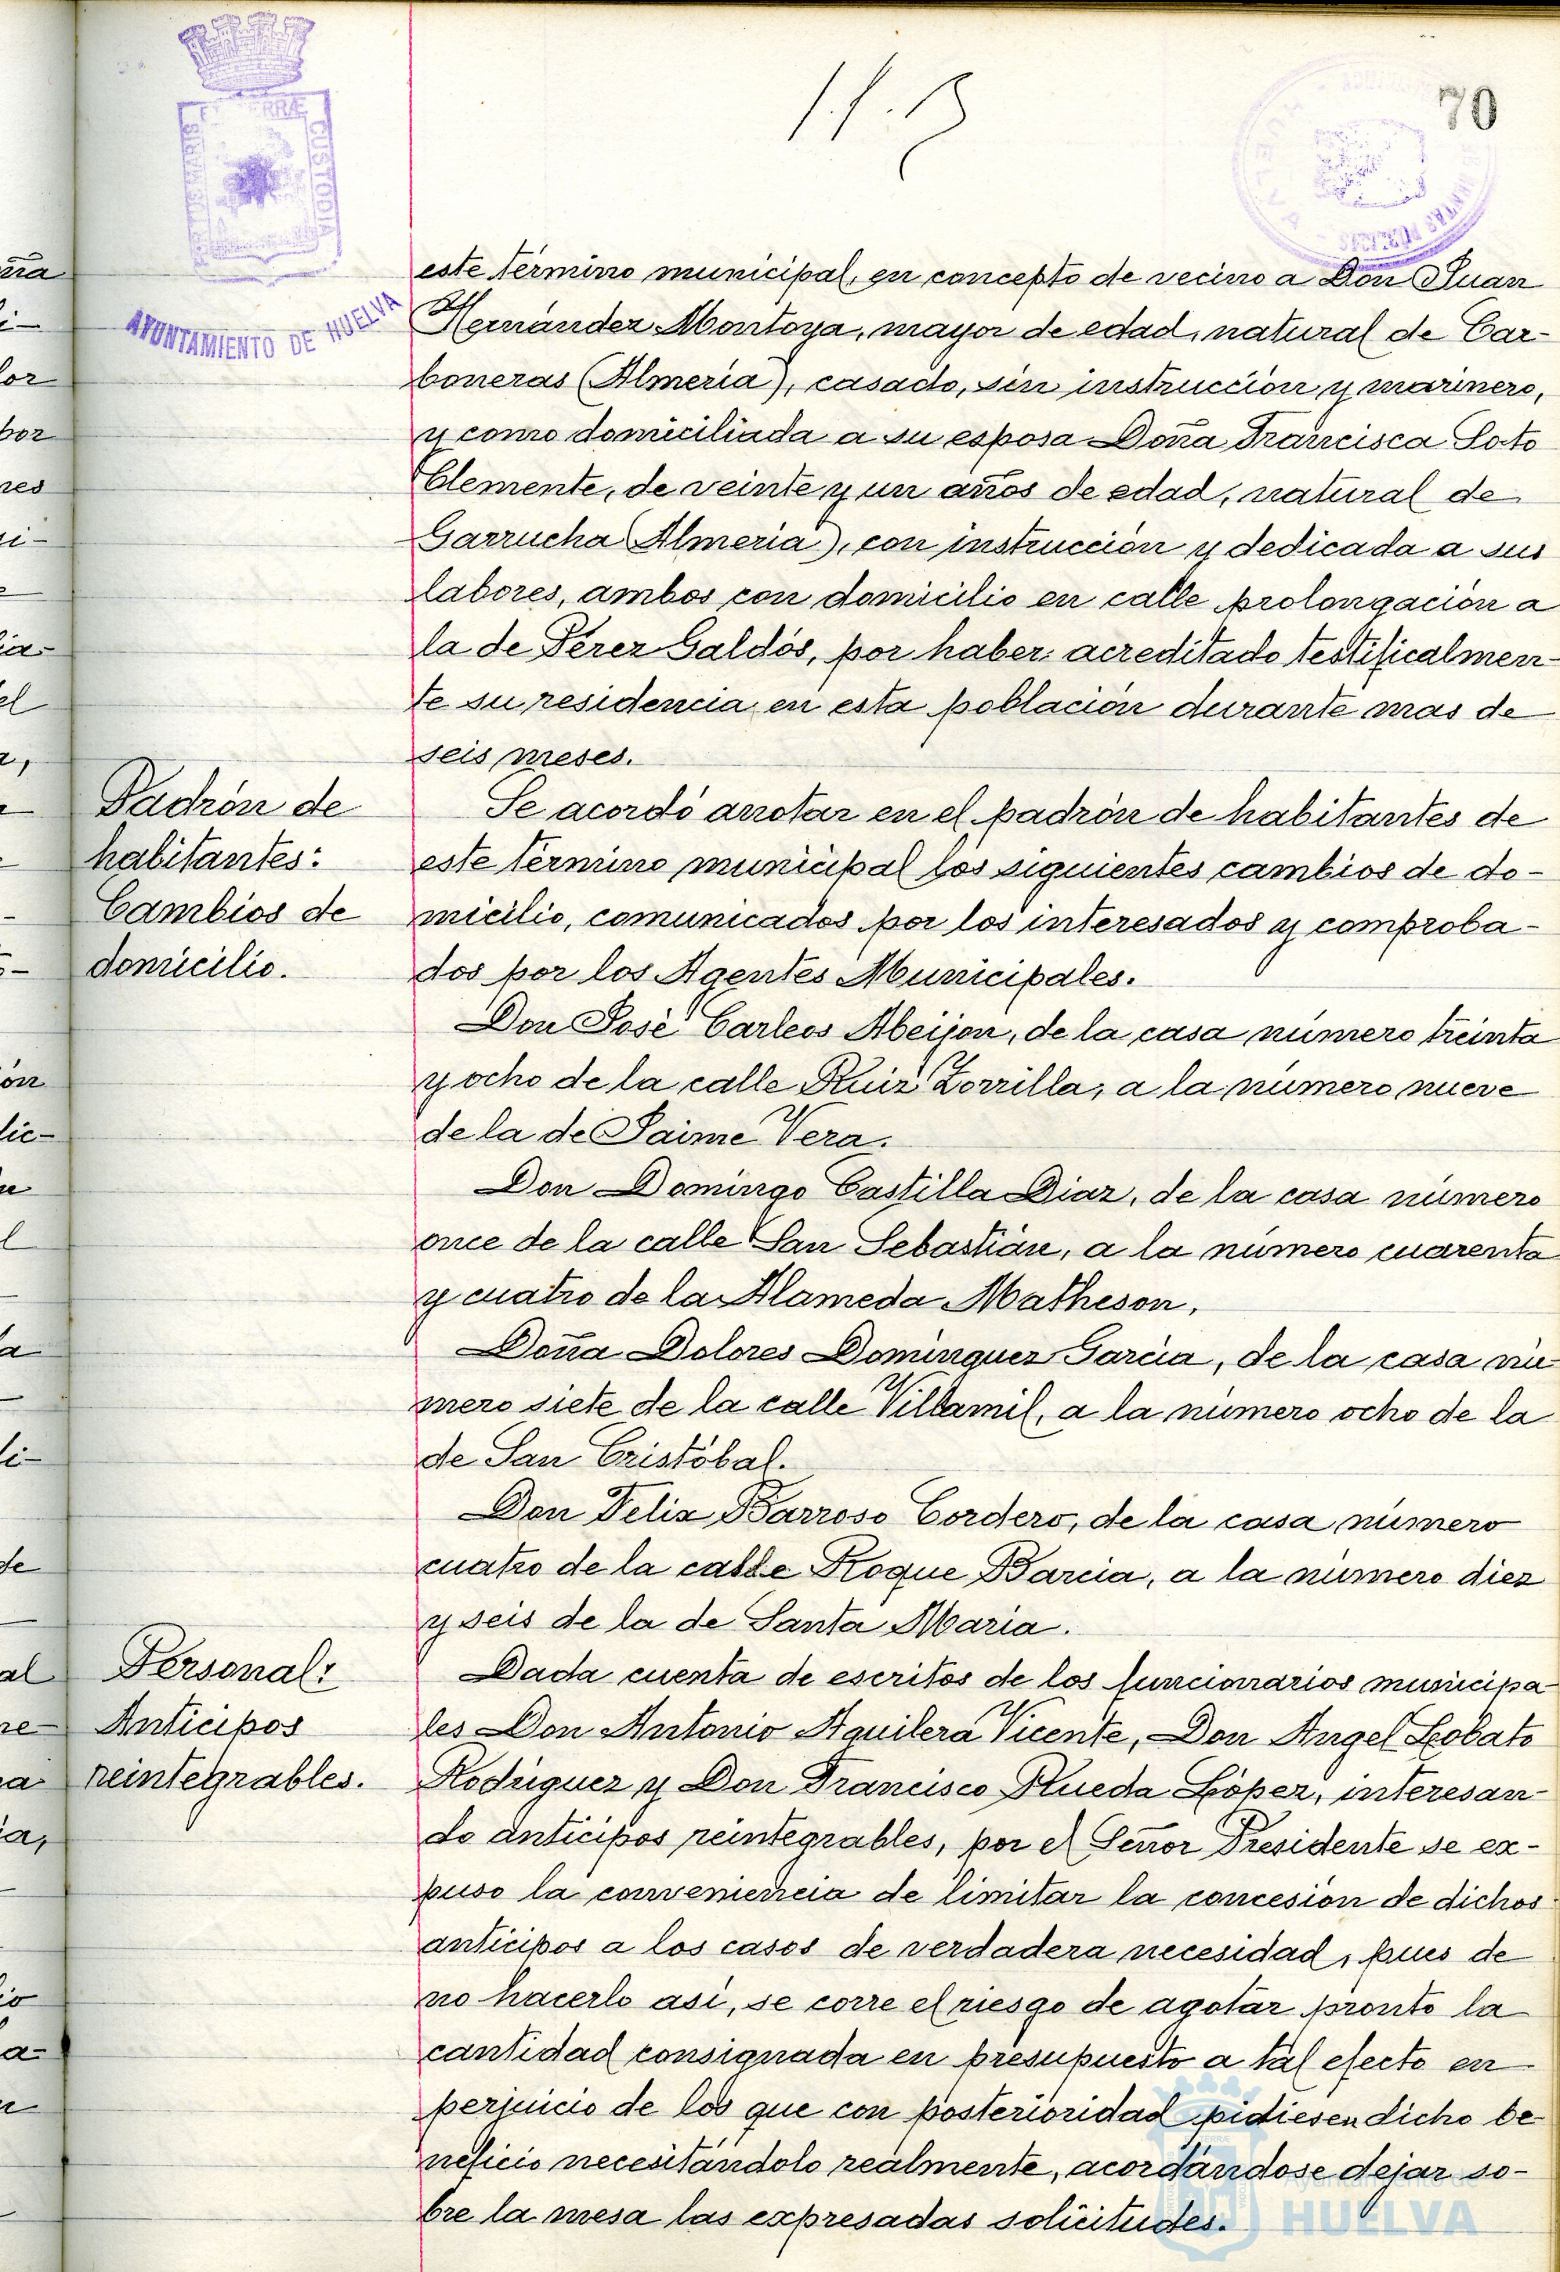 70
AYUNTAMIENTO DE HUELVA
este término municipal, en concepto de vecino a Don Juan
Hernández Montoya, mayor de edad, natural de Car-
boneras (Almería), casado, sin instrucción y marinero,
y como domiciliada a su esposa Doña Francisca Soto
Clemente, de veinte y un años de edad, natural de
Garrucha (Almería), con instrucción y dedicada a sus
labores, ambos con domicilio en calle prolongación a
la de Pérez Galdós, por haber acreditado testificalmen-
te su residencia en esta población durante mas de
seis meses.
Padrón de
habitantes:
Cambios de
domicilio.
Se acordó anotar en el padrón de habitantes de
este término municipal los siguientes cambios de do-
micilio, comunicados por los interesados y comproba-
dos por los Agentes Municipales.
Don José Carleos Abeijon, de la casa número treinta
y ocho de la calle Ruiz Zorrilla, a la número nueve
de la de Jaime Vera.
Don Domingo Castilla Diaz, de la casa número
once de la calle San Sebastián, a la número cuarenta
y cuatro de la Alameda Matheson.
Doña Dolores Dominguez García, de la casa nú-
mero siete de la calle Villamil, a la número ocho de la
de San Cristóbal.
Don Felix Barroso Cordero, de la casa número
cuatro de la calle Roque Barcia, a la número diez
y seis de la de Santa María.
Personal:
Anticipos
reintegrables.
Dada cuenta de escritos de los funcionarios municipa-
les Don Antonio Aguilera Vicente, Don Angel Lobato
Rodríguez y Don Francisco Rueda López, interesan-
do anticipos reintegrables, por el Señor Presidente se ex-
puso la conveniencia de limitar la concesión de dichos
anticipos a los casos de verdadera necesidad, pues de
no hacerlo así, se corre el riesgo de agotar pronto la
cantidad consignada en presupuesto a tal efecto en
perjuicio de los que con posterioridad pidiesen dicho be-
neficio necesitándolo realmente, acordándose dejar so-
bre la mesa las expresadas solicitudes.
Ayuntamiento de
HUELVA